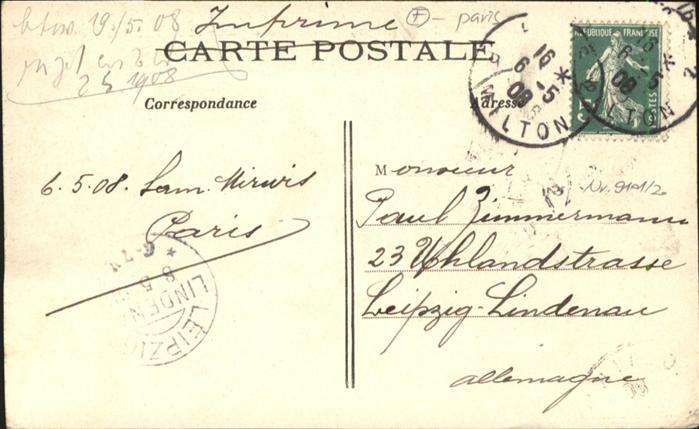 Imprimé
F - Paris
19/5.08
2 5 1908
CARTE POSTALE
Correspondance
Adresse
REPUBLIQUE FRANÇAISE
POSTES
16 -5
6
08
MILTON
6.5.08. Sam. Mirwis
Paris
LEIPZIG
LINDENAU
Monsieur
Nr. 9141/2
Paul Zimmermann
23 Uhlandstrasse
Leipzig-Lindenau
Allemagne